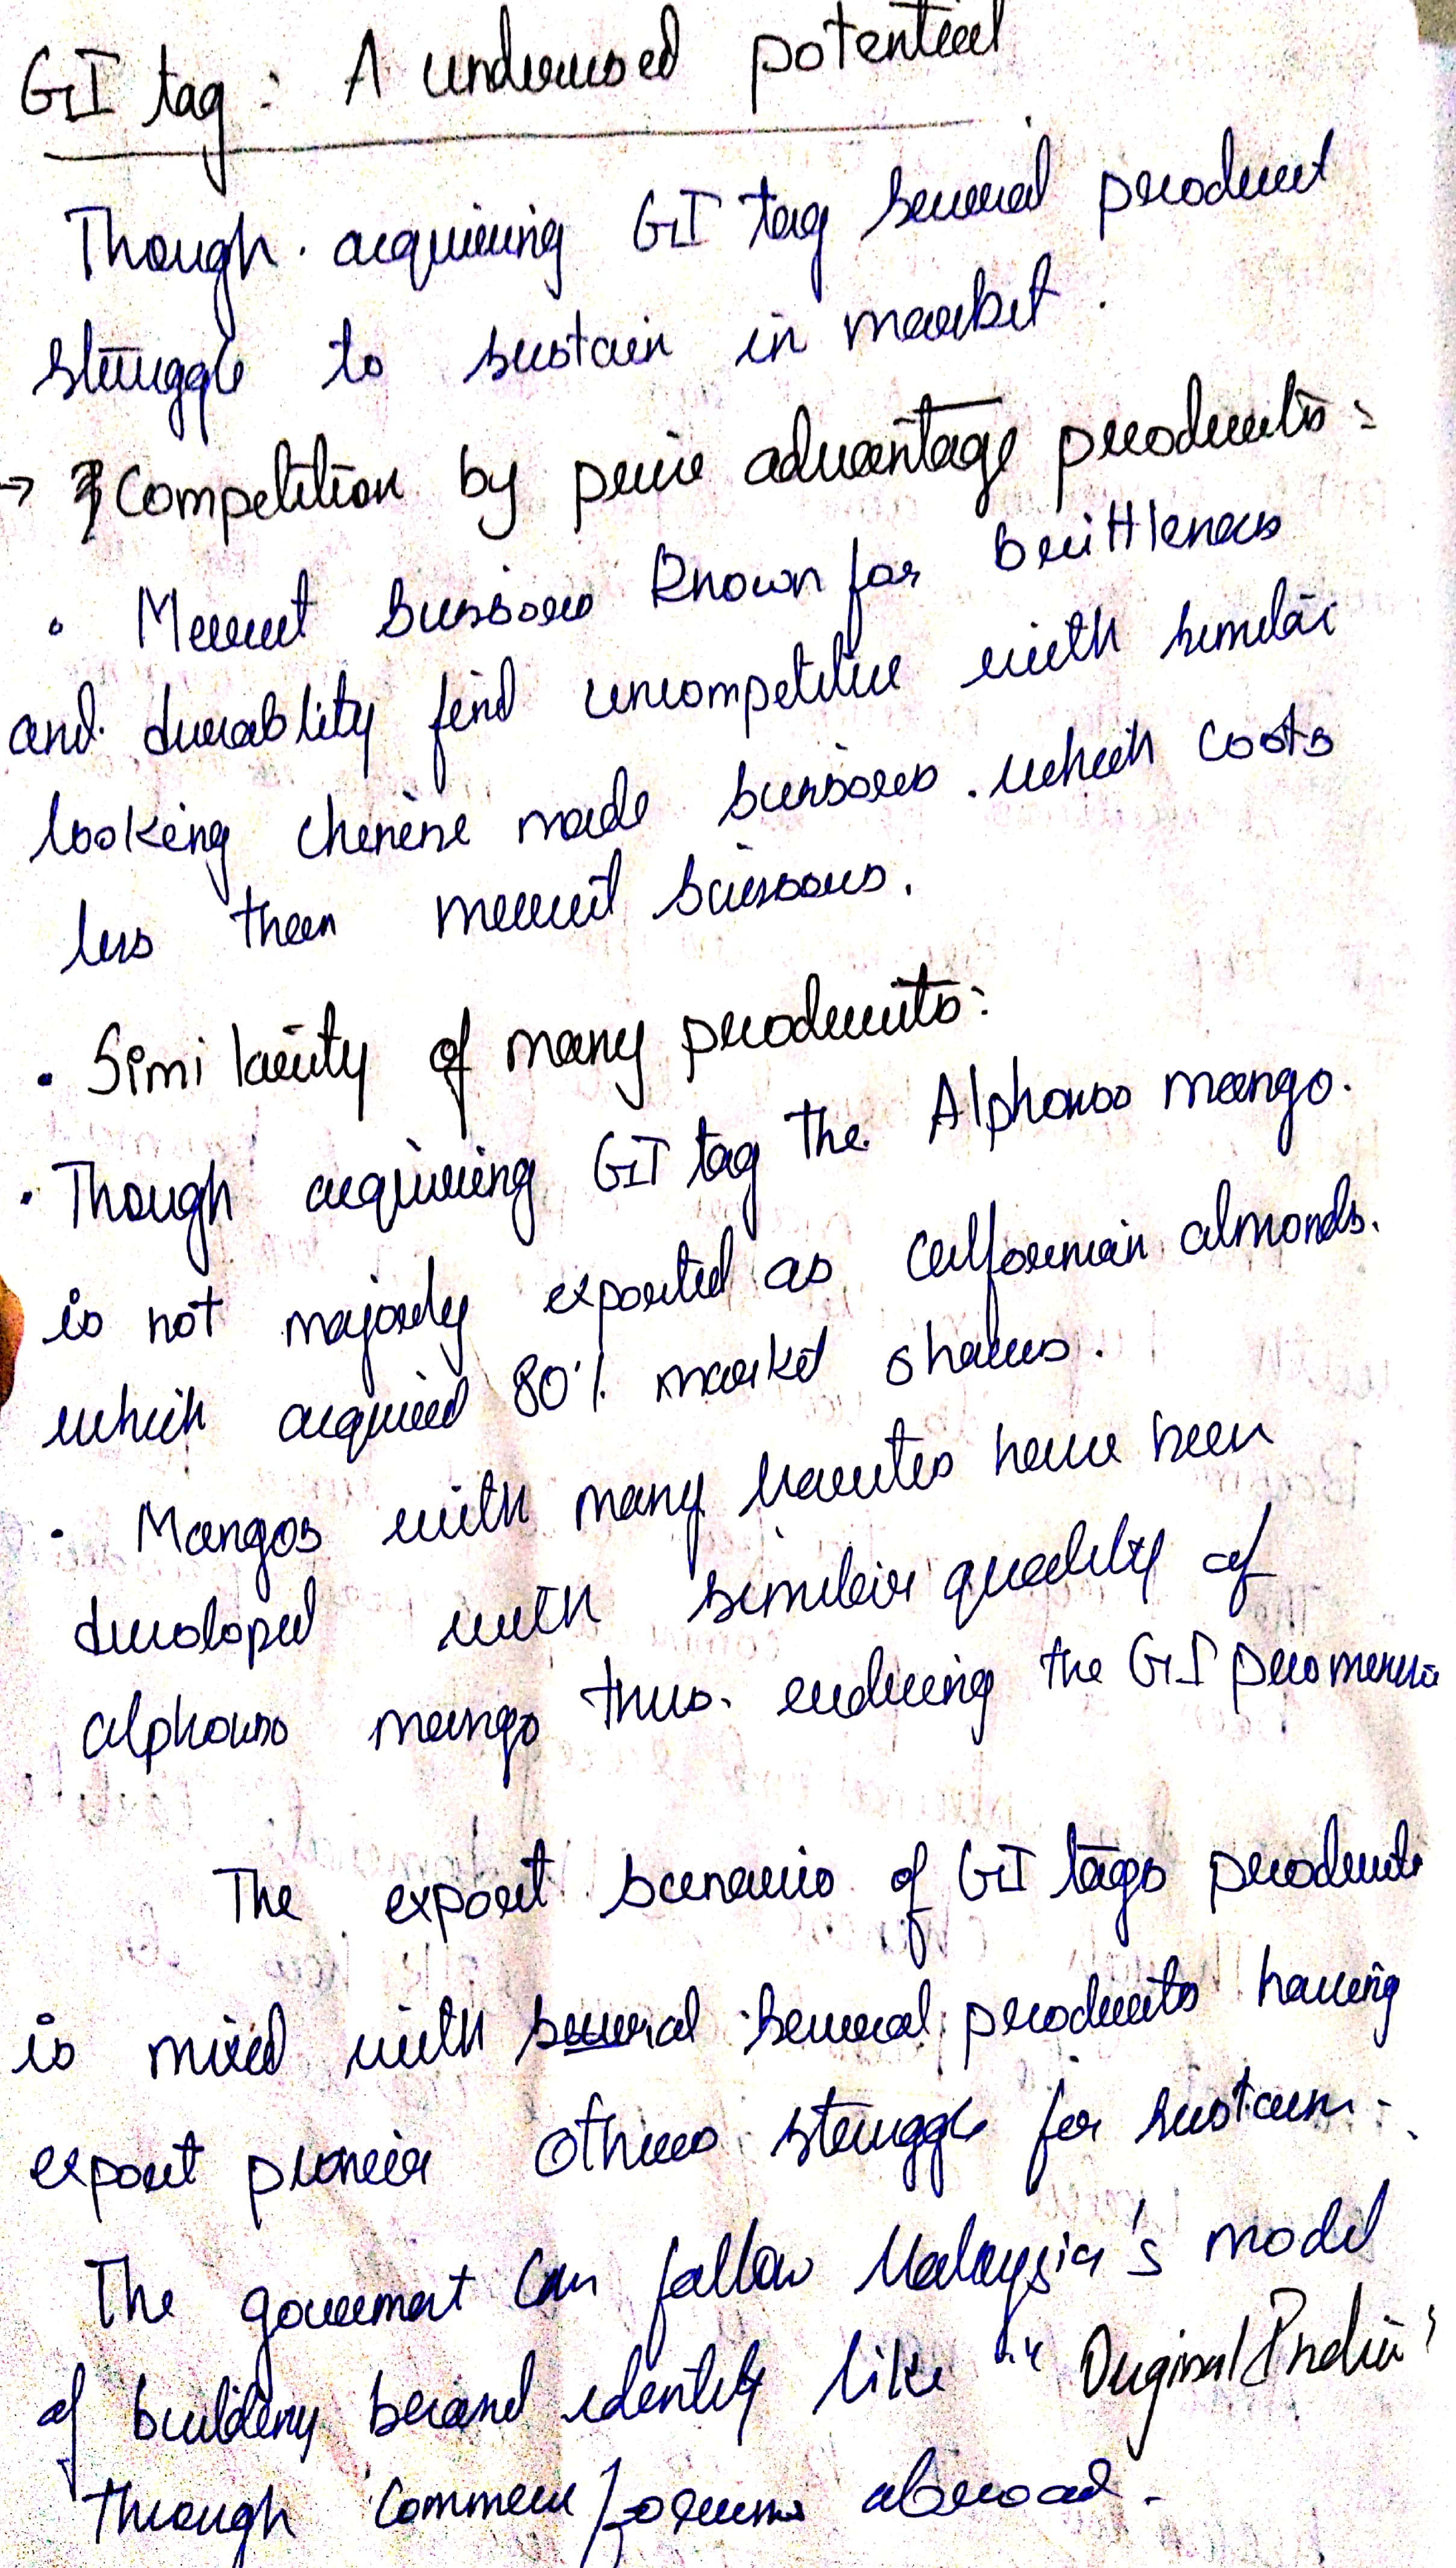 GI tag : A underused potential
Though acquiring GI tag several product
struggle to sustain in market.
→ Competition by price advantage products:
• Meerut scissors known for brittleness
and durablity find uncompetitive with similar
looking chinese made scissores. which costs
less than meerut scissors.
• Similarity of many products:
• Though acquiring GI tag the Alphonso mango.
is not majorly exported as californian almonds.
which acquired 80% market shares.
• Mangos with many varites have been
developed with similar quality of
alphonso mango thus. reducing the GI
The export scenario of GI tags products
is mixed with several several products having
export pioneer others struggle for sustain.
The goverment can follow Malaysia's model
of building brand identity like "Original India"
Through Commerce forums abroad.